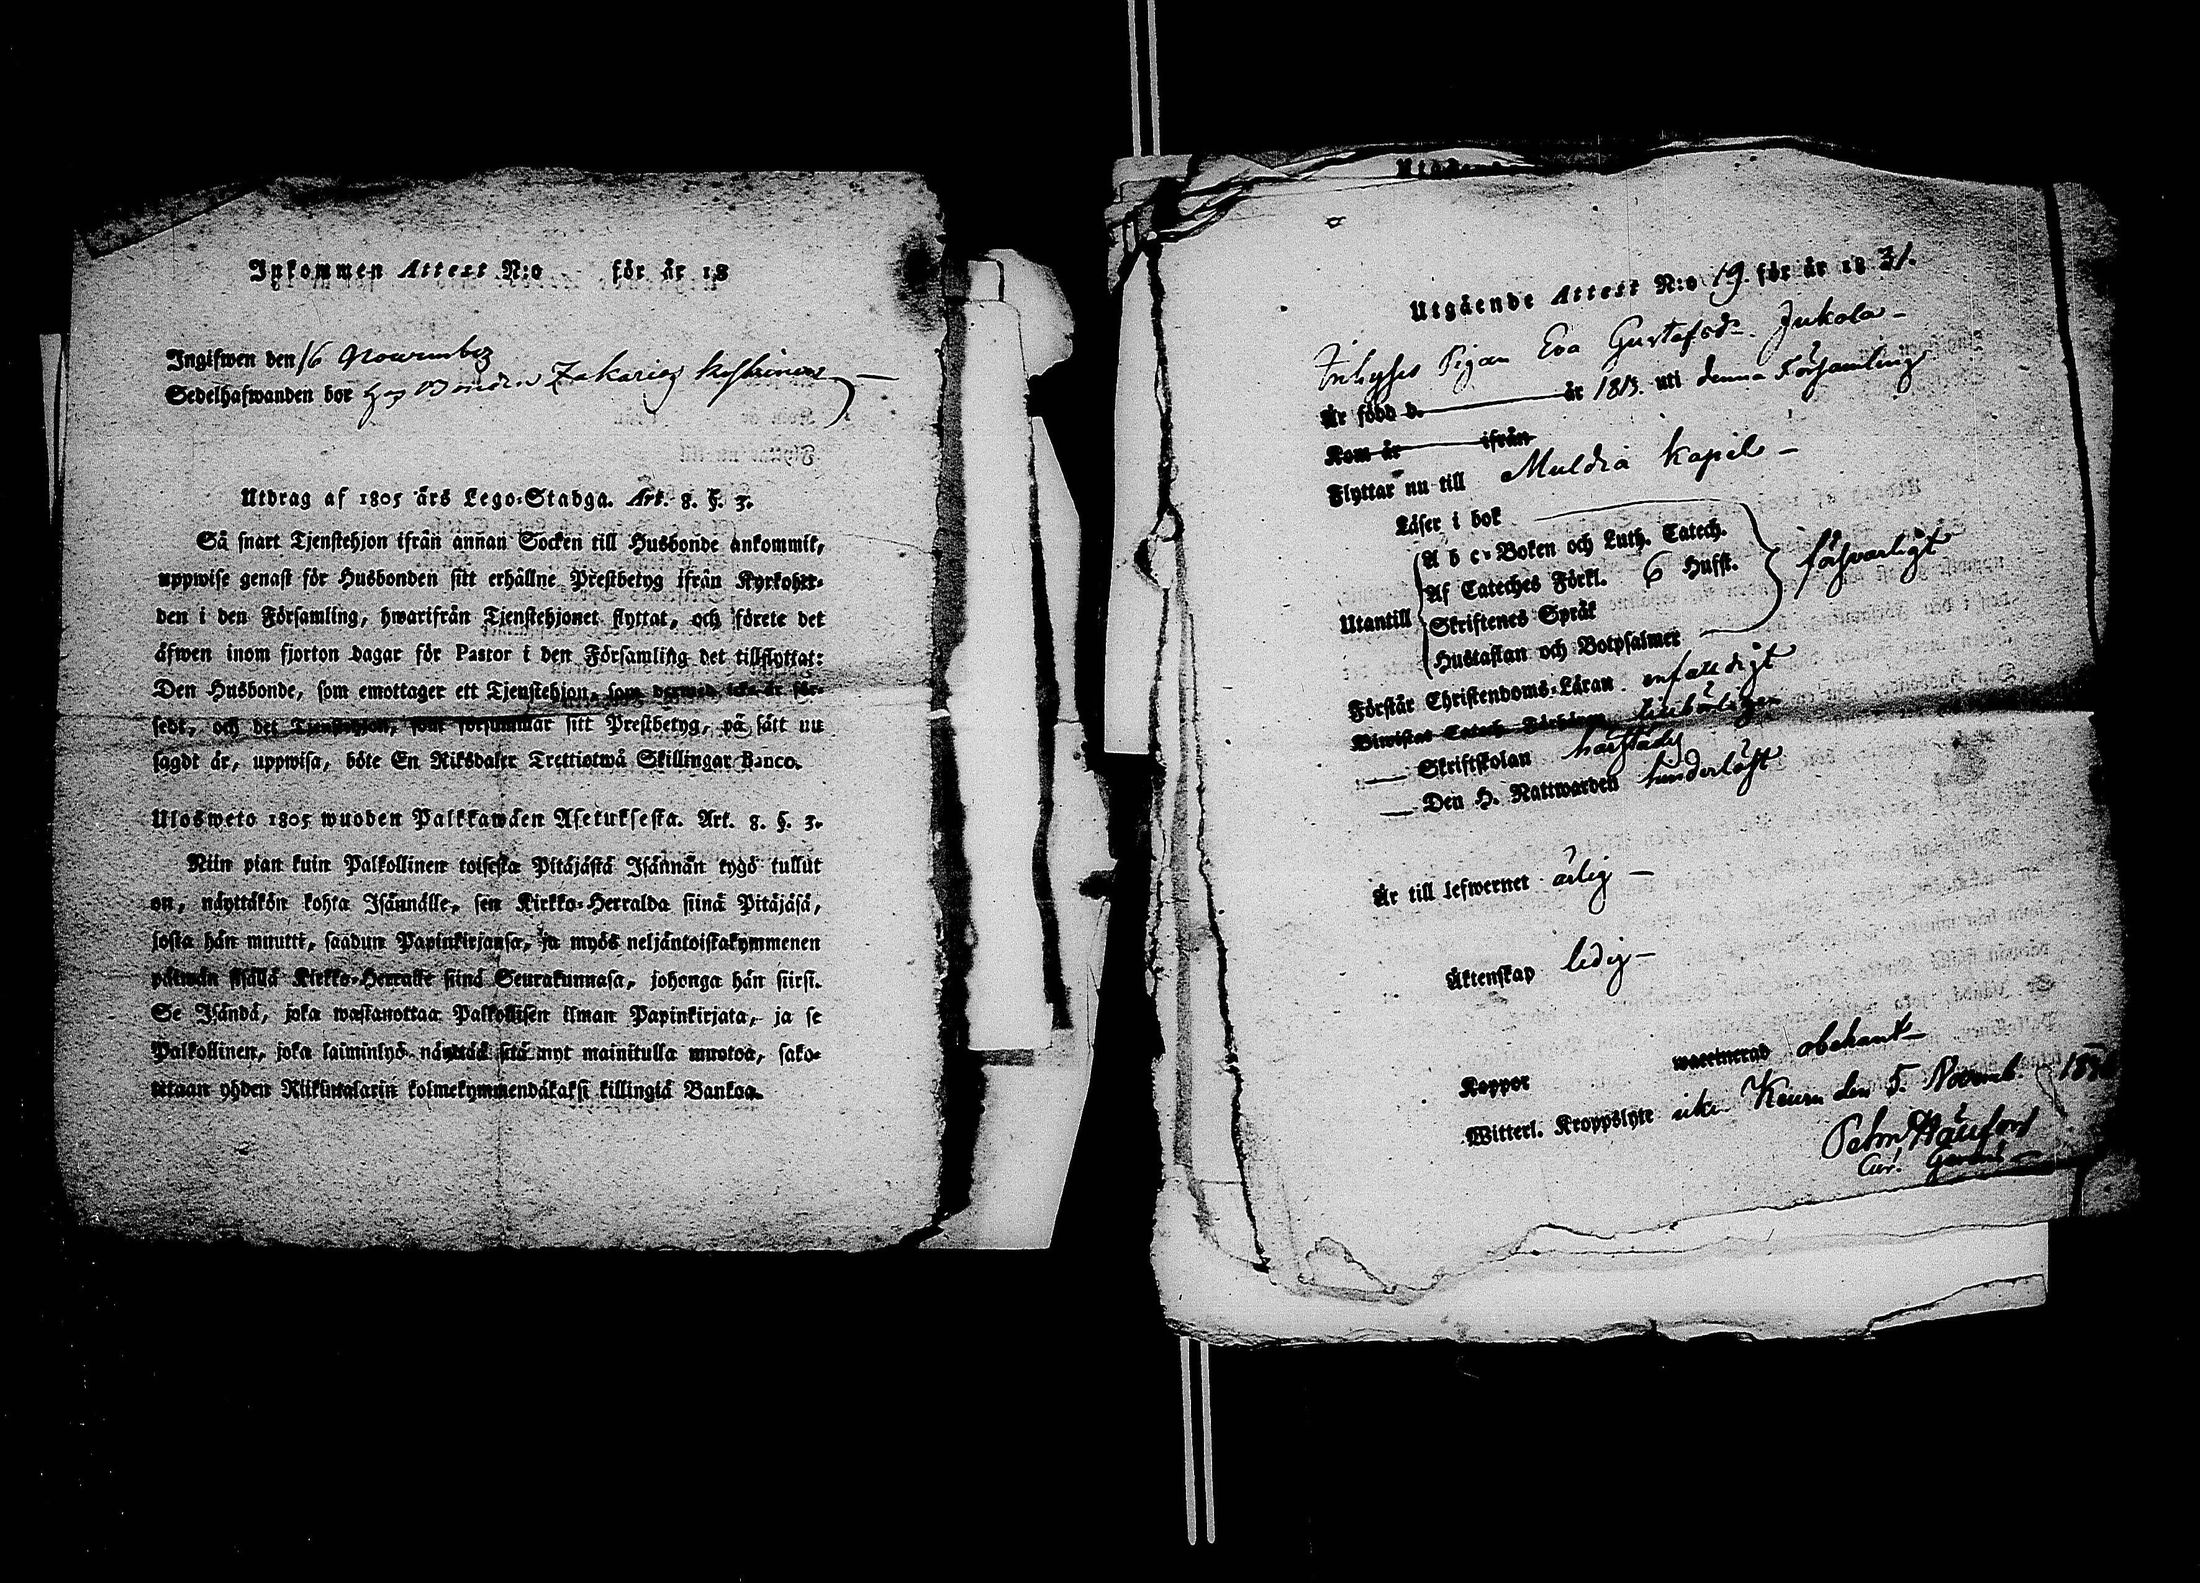 Inkommen Attest N:o för år 18
Ingifwen den 16 November
Sedelhafwanden bor hos Bonden Zakarias
Utdrag af 1805 års Lego-Stadga. Art. 8. §. 3.
Så snart Tjenstehjon ifrån annan Socken till Husbonde ankommit,
uppwise genast för Husbonden sitt erhållne Prestbetyg ifrån Kyrkoher-
den i den Församling, hwarifrån Tjenstehjonet flyttat, och förete det
äfwen inom fjorton dagar för Pastor i den Församling det tillflyttat:
Den Husbonde, som emottager ett Tjenstehjon, som dermed icke är för-
sedt, och det Tjenstehjon, som försummar sitt Prestbetyg, på sätt nu
sagdt är, uppwisa, böte En Riksdaler Trettiotwå Skillingar Banco.
Ulosweto 1805 wuoden Palkkawäen Asetuksesta. Art. 8. §. 3.
Niin pian kuin Palkollinen toisesta Pitäjästä Isännän tygö tullut
on, näyttäkön kohta Isännälle, sen Kirkko-Herralda siinä Pitäjäsä,
josta hän muutti, saadun Papinkirjansa, ja myös neljäntoistakymmenen
päiwän sisällä Kirkko-Herralle siinä Seurakunnasa, johonga hän siirsi.
Se Isändä, joka wastanottaa Palkollisen ilman Papinkirjata, ja se
Palkollinen, joka laiminlyö näyttää sitä nyt mainitulla muotoa, sako-
tetaan yhden Riiksitalarin kolmekymmendäkaksi killingiä Bankoa.
Utgående Attest N:o 19. för år 1831.
Inhyses Pigan Eva Gustafsdr Jukola
Är född d. år 1813. uti denna Församling
Kom år ifrån
Flyttar nu till Muldia Kapell
Läser i bok
Utantill
A b c-Boken och Luth. Catech.
Af Cateches Förkl. 6 Hufst.
Skriftenes Språk
Hustaflan och Botpsalmer
försvarligt
Förstår Christendoms-Läran enfaldigt
Biwistat Catech. Förhören tillbörligen
Skriftskolan härstädes
Den H. Nattwarden hinderlöst
Är till lefwernet ärlig
Äktenskap ledig
Koppor waccinerad obekant
Witterl. Kroppslyte icke Keuru den 5. Novemb.